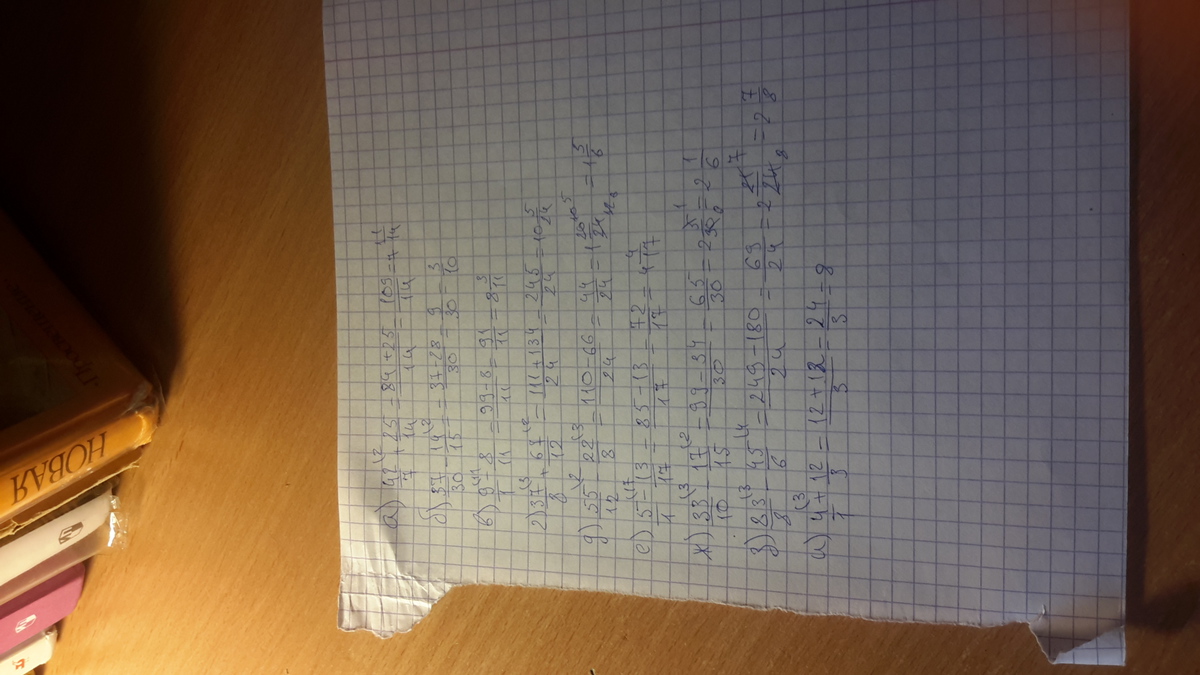 а) 42/7 + 25/14 = 84+25/14 = 109/14 = 7 11/14
б) 37/30 - 14/15 = 37-28/30 = 9/30 = 3/10
в) 9/1 - 8/11 = 99-8/11 = 91/11 = 8 3/11
г) 37/8 + 67/12 = 111+134/24 = 245/24 = 10 5/24
д) 55/12 - 22/8 = 110-66/24 = 44/24 = 1 20/24 = 1 5/6
е) 5/1 - 13/17 = 85-13/17 = 72/17 = 4 4/17
ж) 33/10 - 17/15 = 99-34/30 = 65/30 = 2 5/30 = 2 1/6
з) 83/8 - 45/6 = 249-180/24 = 69/24 = 2 21/24 = 2 7/8
и) 4/1 + 12/3 = 12+12/3 = 24/3 = 8
НОВАЯ